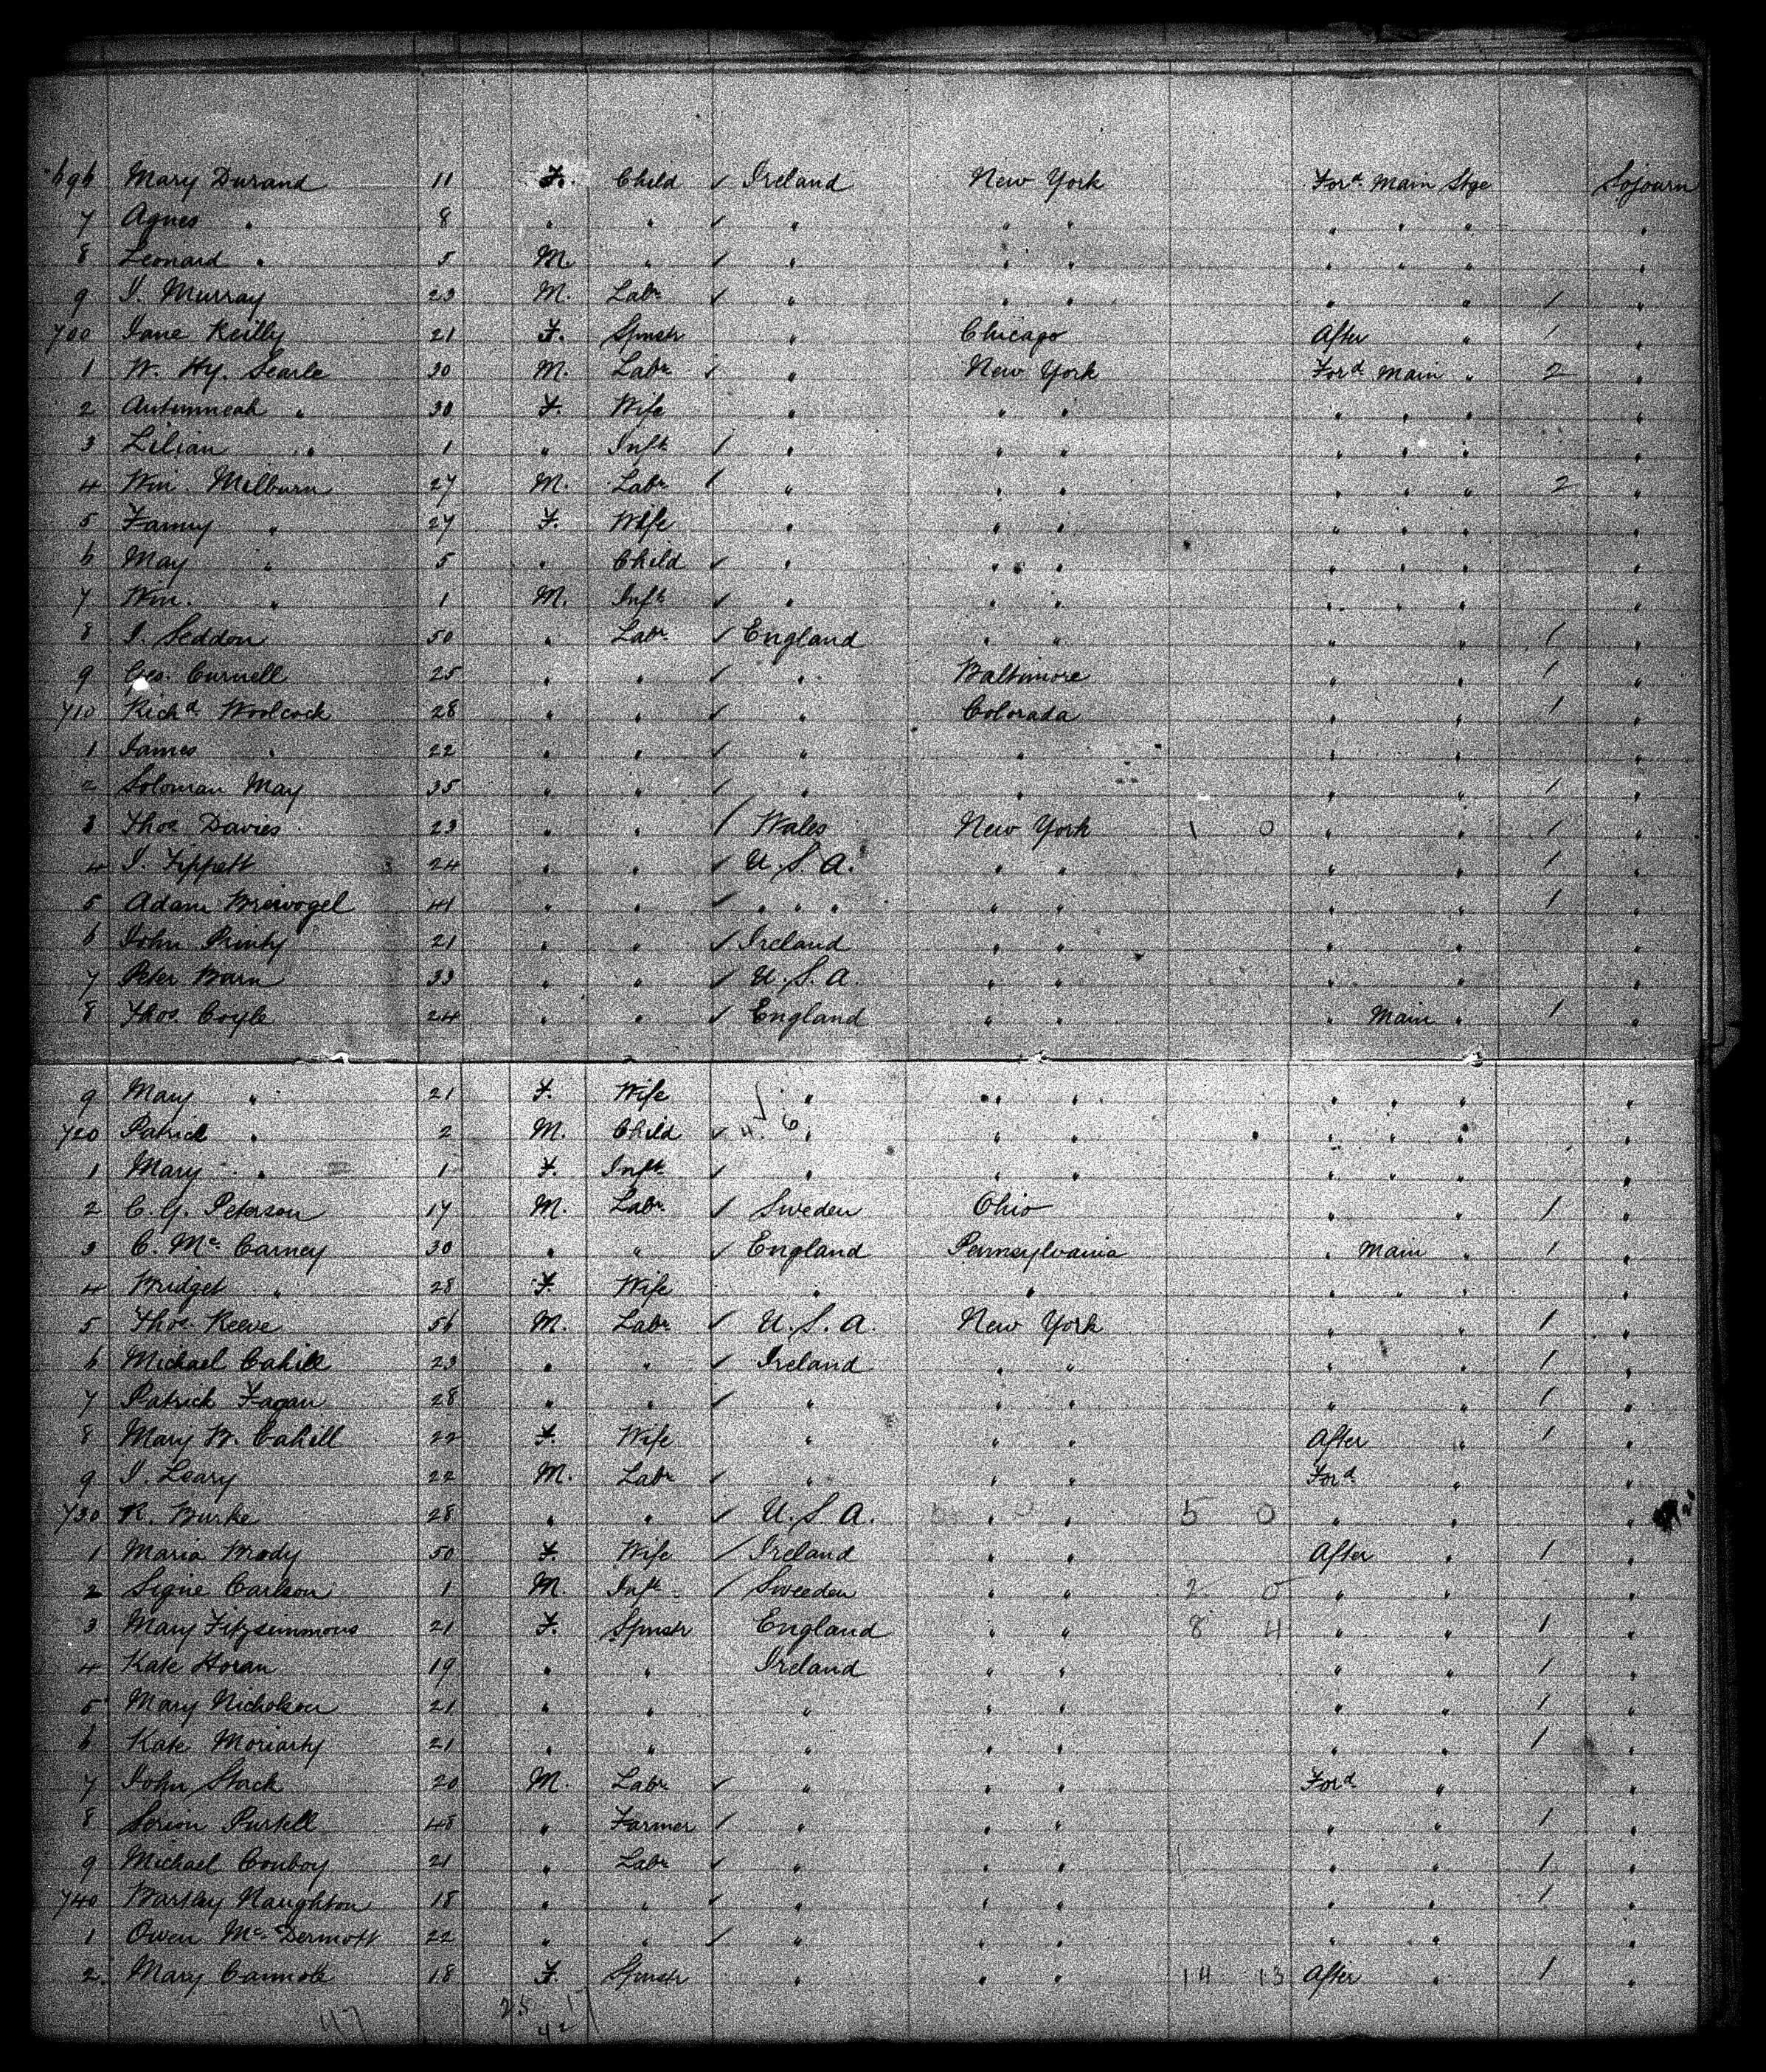 696 Mary Durand 11 F. Child ✓ Ireland New York For^d. Main Stge Sojourn
7 Agnes " 8 " " ✓ " " " " " " "
8 Leonard " 5 M. " ✓ " " " " " " "
9 J. Murray 23 M. Labr ✓ " " " " " 1 "
700 Jane Reilly 21 F. Spnstr " Chicago After " 1 "
1 W. Hy. Searle 30 M. Labr ✓ " New York For^d Main " 2 "
2 " 30 F. Wife " " " " " " "
3 Lilian " 1 " Inft ✓ " " " " " " "
4 Wm. Milburn 27 M. Labr ✓ " " " " " " 2 "
5 Fanny " 27 F. Wife " " " " " " "
6 May " 5 " Child ✓ " " " " " " "
7 Wm. " 1 M. Inft ✓ " " " " " " "
8 J. Seddon 50 " Labr ✓ England " " " " 1 "
9 Geo. Curnell 25 " " ✓ " Baltimore " " 1 "
710 Rich^d Woolcock 28 " " ✓ " Colorada " " 1 "
1 James " 22 " " ✓ " " " " "
2 Soloman May 35 " " ✓ " " " " 1 "
3 Thos Davies 23 " " ✓ Wales New York 1 0 " " 1 "
4 J. Tippett 24 " " ✓ U.S.A. " " " " 1 "
5 Adam 41 " " ✓ " " " " " " " 1 "
6 John Printy 21 " " ✓ Ireland " " " " "
7 Peter Barn 33 " " ✓ U.S.A. " " " " "
8 Thos. Coyle 24 " " ✓ England " " " Main " 1 "
9 Mary " 21 F. Wife ✓ " " " " " " "
720 Patrick " 2 M. Child ✓ 4. 6 " " " " " " "
1 Mary " 1 F. Inft ✓ " " " " " " "
2 C. G. Peterson 17 M. Labr ✓ Sweden Ohio " " 1 "
3 C. Mc Carney 30 " " ✓ England Pennsylvania " Main " 1 "
4 Bridget " 28 F. Wife " " " " " "
5 Thos. Reeve 56 M. Labr ✓ U.S.A. New York " " 1 "
6 Michael Cahill 23 " " ✓ Ireland " " " " 1 "
7 Patrick Fagan 28 " " ✓ " " " " " 1 "
8 Mary B. Cahill 22 F. Wife " " " After " 1 "
9 J. Leary 22 M. Labr ✓ " " " For^d " "
730 R. Burke 28 " " ✓ U.S.A. " " 5 0 " " "
1 Maria Brody 50 F. Wife ✓ Ireland " " After " 1 "
2 Signe Carlson 1 M. Inft ✓ Sweeden " " 2 0 " " "
3 Mary Fitzsimmons 21 F. Spnstr England " " 8 4 " " 1 "
4 Kate Horan 19 " " Ireland " " " " 1 "
5 Mary Nicholson 21 " " " " " " " 1 "
6 Kate Moriarty 21 " " " " " " " 1 "
7 John Stack 20 M. Labr ✓ " " " For^d " "
8 Purtell 48 " Farmer ✓ " " " " " 1 "
9 Michael Conboy 21 " Labr ✓ " " " " " 1 "
740 Bartley Naughton 18 " " ✓ " " " " " 1 "
1 Owen Mc Dermott 22 " " ✓ " " " " " "
2 Mary 18 F. Spnstr " " " 14 13 After " 1 "
47 25 17
42